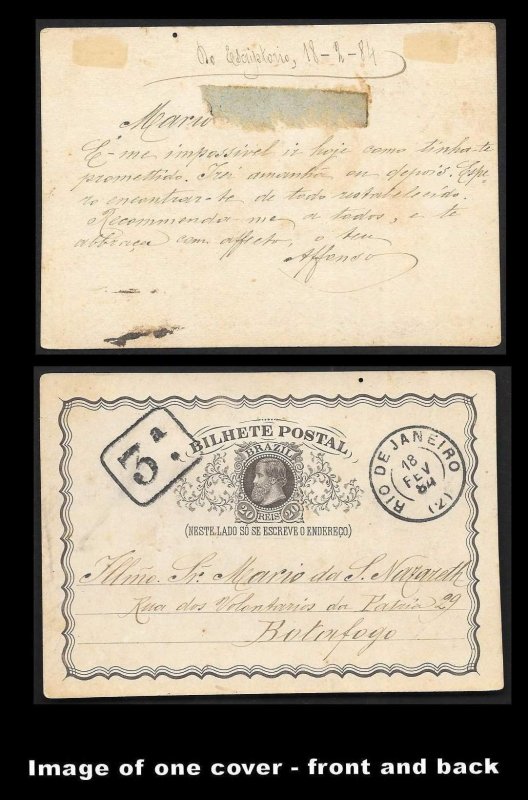 Do Escriptorio, 18-2-84
Mario
É-me impossivel ir hoje como tinha-te
promettido. Irei amanhã ou depois. Espe-
ro encontrar-te de todo restabelecido.
Recommenda me a todos, e te
abbraça com affecto, o teu
Affonso
3ª.
BILHETE POSTAL
BRAZIL
20 REIS 20
(NESTE LADO SÓ SE ESCREVE O ENDEREÇO)
RIO DE JANEIRO
18
FEV
84
(2)
Illmo. Sr. Mario da S. Nazareth
Rua dos Volontarios da Patria 29
Botafogo
Image of one cover - front and back